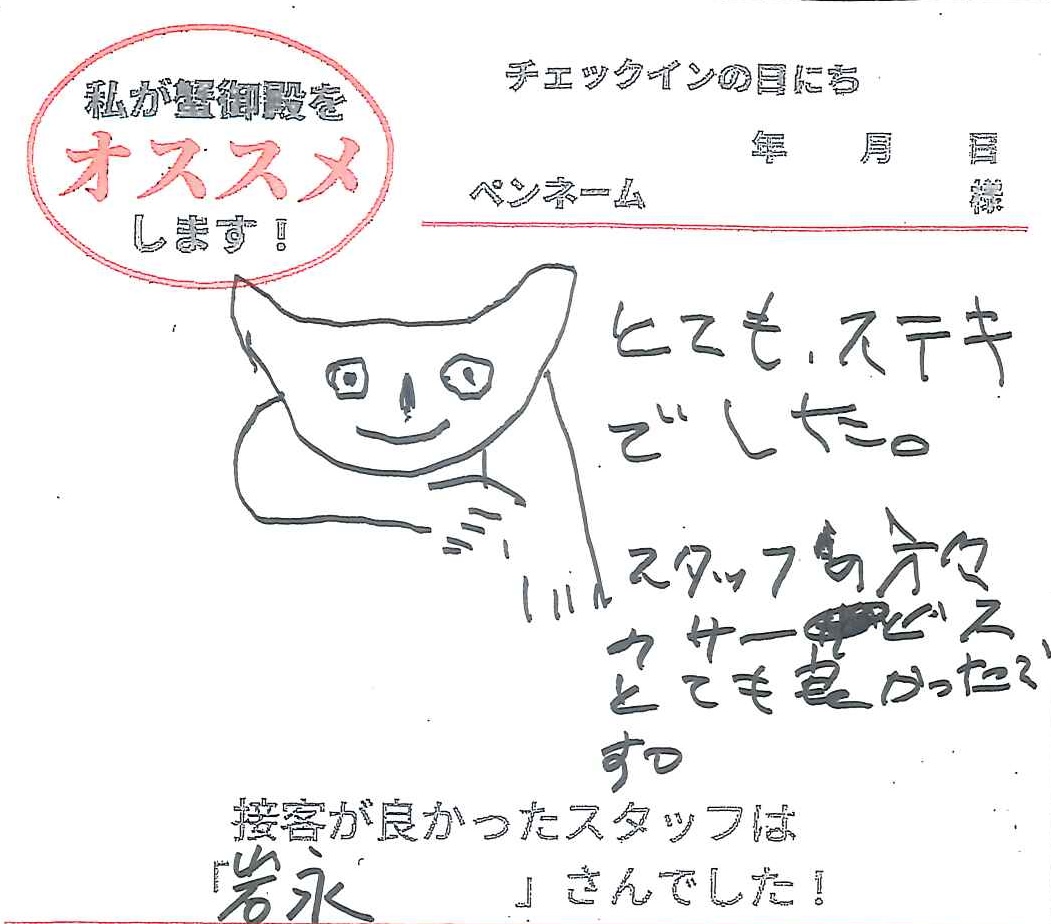 私が蟹御殿を
オススメ
します！
チェックインの日にち
年 月 日
ペンネーム 様
とても、ステキ
でした。
スタッフの方々
のサービス
とても良かったで
す。
接客が良かったスタッフは
「岩永 」さんでした！